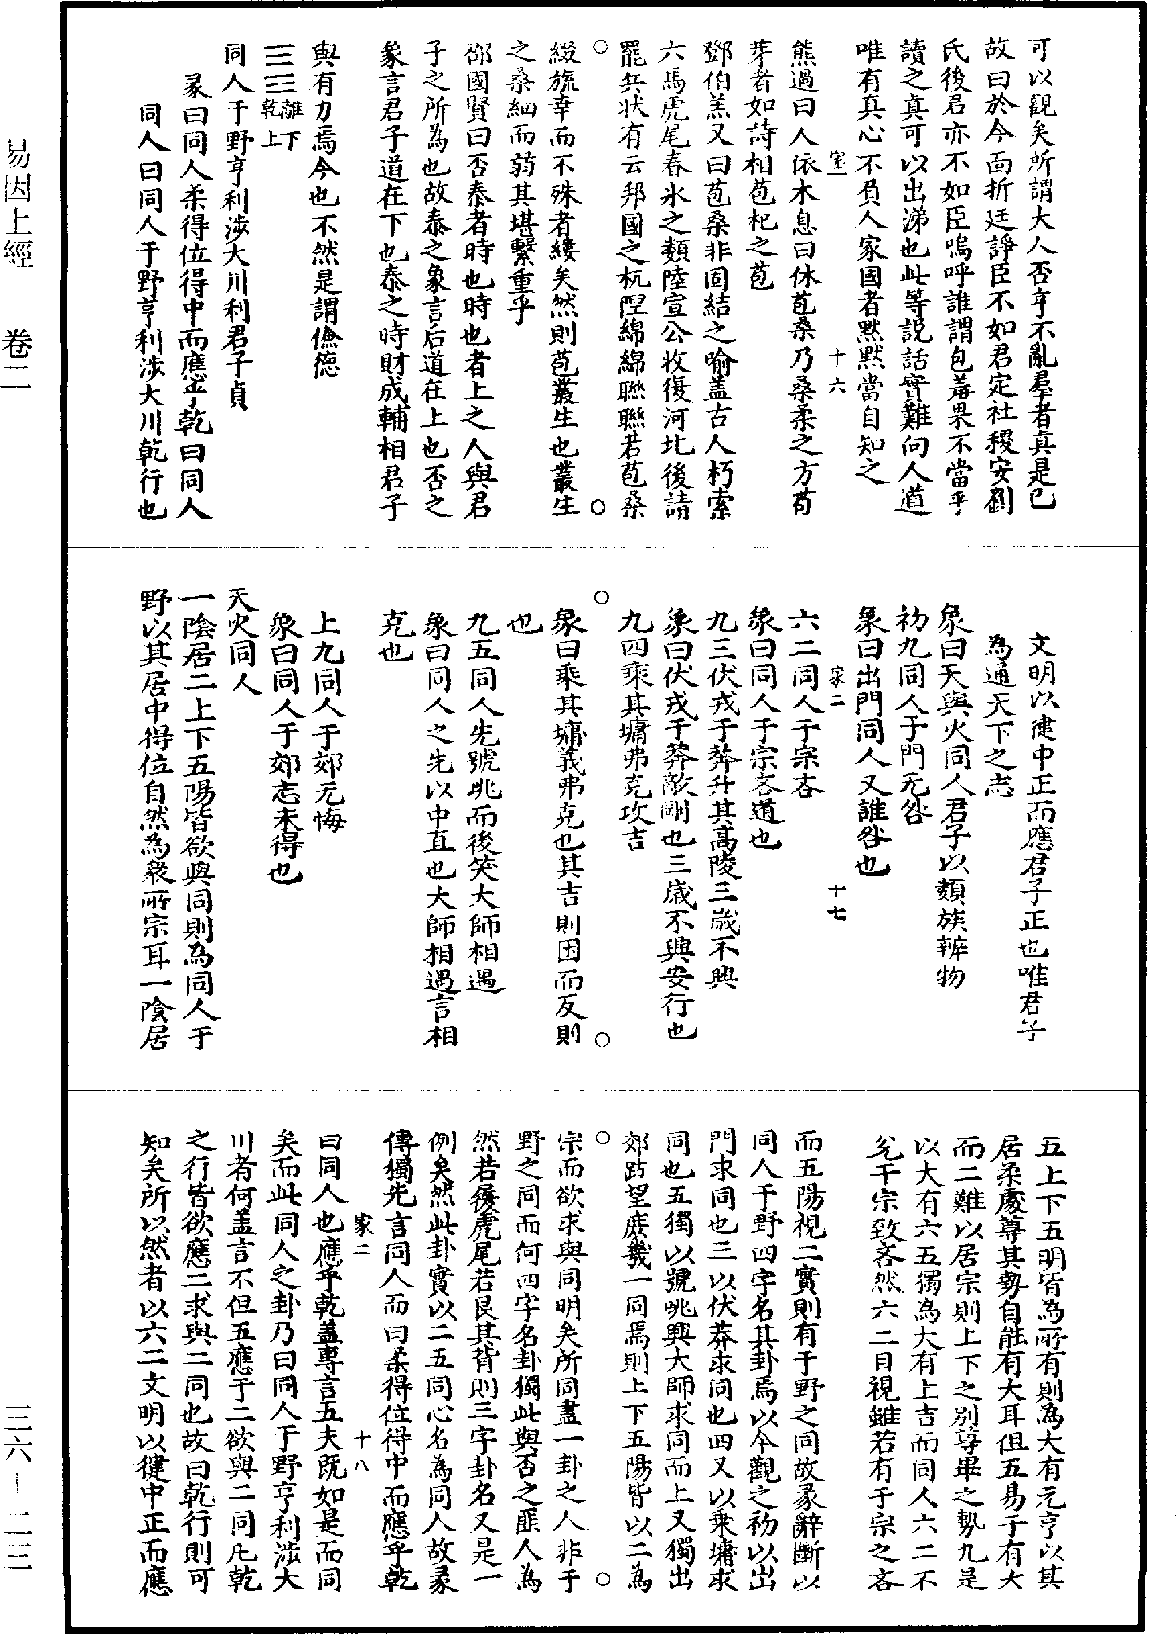 易因上經　卷二
三六—二三
可以觀矣所謂大人否亨不亂羣者真是已
故曰於今面折廷諍臣不如君定社稷安劉
氏後君亦不如臣嗚呼誰謂包羞果不當乎
讀之真可以出涕也此等説話實難向人道
唯有真心不負人家國者黙黙當自知之
家二　十六
熊過曰人依木息曰休苞桑乃桑柔之方苟
芽者如詩相苞杞之苞
鄧伯羔又曰苞桑非固結之喻盖古人朽索
六馬虎尾春氷之類陸宣公收復河北後請
罷兵狀有云邦國之杌隉綿綿聯聯若苞桑
綴旒幸而不殊者縷矣然則苞叢生也叢生
之桑細而弱其堪繫重乎
鄒國賢曰否泰者時也時也者上之人與君
子之所為也故泰之象言后道在上也否之
象言君子道在下也泰之時財成輔相君子
與有力焉今也不然是謂儉德
離下乾上
同人于野亨利涉大川利君子貞
彖曰同人柔得位得中而應乎乾曰同人
同人曰同人于野亨利涉大川乾行也
文明以健中正而應君子正也唯君子
為通天下之志
象曰天與火同人君子以類族辨物
初九同人于門无咎
象曰出門同人又誰咎也
家二　十七
六二同人于宗吝
象曰同人于宗吝道也
九三伏戎于莽升其高陵三歲不興
象曰伏戎于莽敵剛也三歲不興安行也
九四乘其墉弗克攻吉
象曰乘其墉義弗克也其吉則困而反則
也
九五同人先號咷而後笑大師相遇
象曰同人之先以中直也大師相遇言相
克也
上九同人于郊无悔
象曰同人于郊志未得也
天火同人
一陰居二上下五陽皆欲與同則為同人于
野以其居中得位自然為衆所宗耳一陰居
五上下五明皆為所有則為大有元亨以其
居柔處尊其勢自能有大耳但五易于有大
而二難以居宗則上下之别尊卑之勢九是
以大有六五獨為大有上吉而同人六二不
免于宗致吝然六二自視雖若有于宗之吝
而五陽視二實則有于野之同故彖辭斷以
同人于野四字名其卦焉以今觀之初以出
門求同也三以伏莽求同也四又以乗墉求
同也五獨以號咷興大師求同而上又獨出
郊跂望庶幾一同焉則上下五陽皆以二為
宗而欲求與同明矣所同盡一卦之人非于
野之同而何四字名卦獨此與否之匪人為
然若履虎尾若艮其背則三字卦名又是一
例矣然此卦實以二五同心名為同人故彖
傳獨先言同人而曰柔得位得中而應乎乾
家二　十八
曰同人也應乎乾蓋專言五夫既如是而同
矣而此同人之卦乃曰同人于野亨利涉大
川者何盖言不但五應于二欲與二同凡乾
之行皆欲應二求與二同也故曰乾行則可
知矣所以然者以六二文明以健中正而應